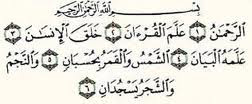 بِسْمِ اللَّهِ الرَّحْمَٰنِ الرَّحِيمِ
ٱلرَّحْمَٰنُ ١ عَلَّمَ ٱلْقُرْءَانَ ٢ خَلَقَ ٱلْإِنسَٰنَ ٣
عَلَّمَهُ ٱلْبَيَانَ ٤ ٱلشَّمْسُ وَٱلْقَمَرُ بِحُسْبَانٍ ٥ وَٱلنَّجْمُ
وَٱلشَّجَرُ يَسْجُدَانِ ٦